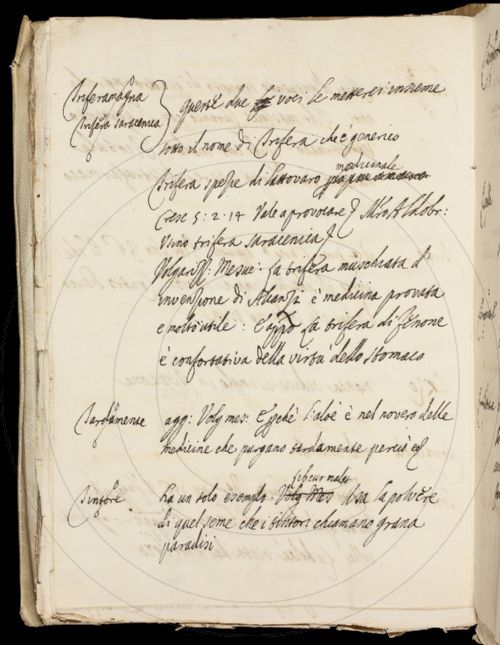 Triferamagna
Trifera saracenica } queste due voci le metterei insieme
sotto il nome di Trifera che è generico
Trifera spezie di lattovaro medicinale
Cresc 5: 2. 14 Vale a provocare
Vino trifera saracenica
Mesue. La trifera muschiata d'
invenzione di è medicina provata
e molto utile: La trifera di fenone
è confortativa della virtù dello stomaco
Tardamente agg: Volg mes: è nel novero delle
medicine che purgano tardamente perciò
Tintore ha un solo esempio. Usa la polvere
di quel seme che i tintori chiamano grana
paradisi